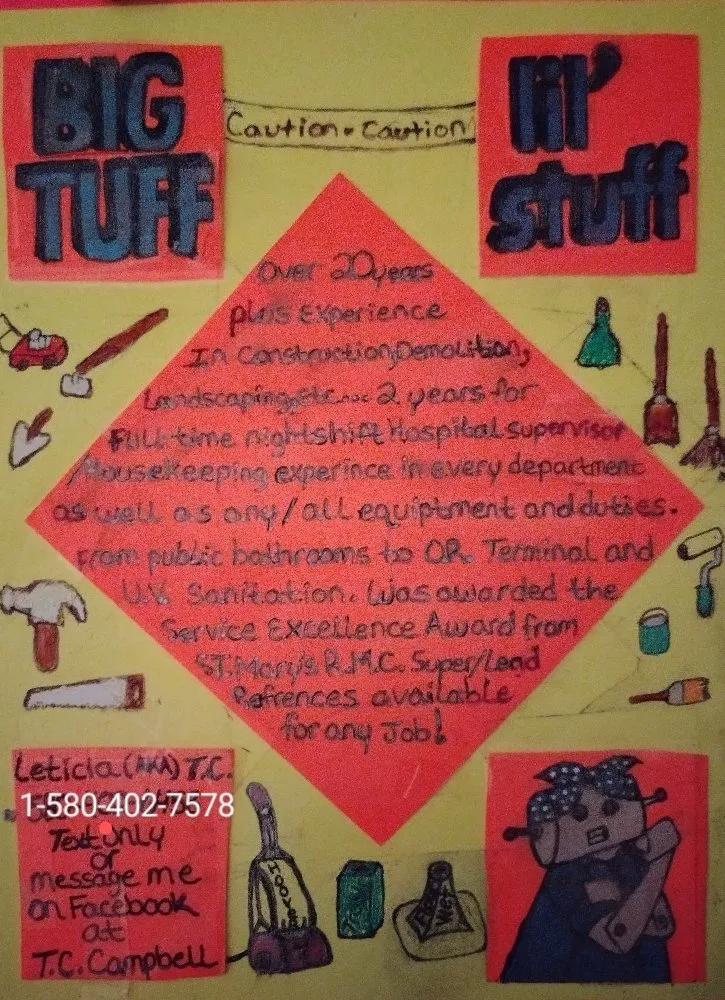 BIG
TUFF
Caution • Caution
lil'
stuff
Over 20 years
plus Experience
In Construction, Demolition,
Landscaping, etc... 2 years for
Full-time nightshift Hospital supervisor
/Housekeeping experince in every department
as well as any/all equiptment and duties.
From public bathrooms to OR. Terminal and
U.V. Sanitation. Was awarded the
Service Excellence Award from
ST. Mary's R.M.C. Super/Lead
Refrences available
for any Job!
Leticia (AKA) T.C.
1-580-402-7578
Text only
or
message me
on Facebook
at
T.C. Campbell
HOOVER